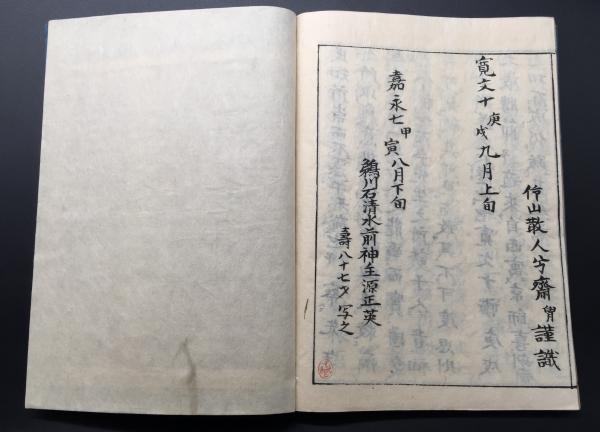 寛文十庚戌九月上旬
伶山散人兮齋胄謹識
嘉永七甲寅八月下旬
鵜川石清水前神主源正英
壽八十七才写之